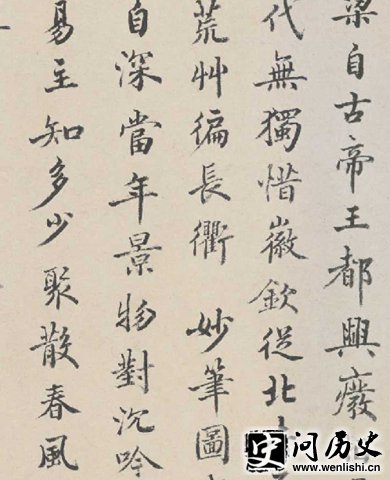 梁自古帝王都興廢
代無獨惜徽欽從北
荒艸徧長衢 妙筆圖
自深當年景物對沉吟
易主知多少聚散春風
史问历史
www.wenlishi.cn